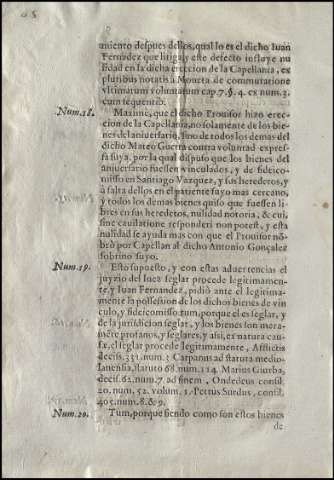 miento despues dellos, qual lo es el dicho Iuan
Fernãdez que litiga, y este defecto influye nu
lidad en la dicha ereccion de la Capellania, ex
pluribus notatis à Moneta de commutatione
vltimarum voluntatum cap. 7. §. 4. ex num. 3.
cum sequentib.
Num. 18. Maxime, que el dicho Prouisor hizo erec-
cion de la Capellania, no solamente de los bie
nes del aniuersario, sino de todos los demas del
dicho Mateo Guerra contra voluntad expres-
sa suya, por la qual dispuso que los bienes del
aniuersario fuessen vinculados, y de fideico-
misso en Santiago Vazquez, y sus herederos, y
à falta dellos en el pariente suyo mas cercano,
y todos los demas bienes quiso que fuessen li-
bres en sus herederos, nulidad notoria, & cui,
sine cauilatione responderi non potest, y esta
nulidad se ayuda mas con que el Prouisor nõ-
brò por Capellan al dicho Antonio Gonçalez
sobrino suyo.
Num. 19. Esto supuesto, y con estas aduertencias el
juyzio del Iuez seglar procede legitimamen-
te, y Iuan Fernandez, pidiò ante el legitima-
mente la possession de los dichos bienes de vin
culo, y fideicomisso: tum, porque el es seglar, y
de la jurisdicion seglar, y los bienes son mera-
mẽte profanos, y seglares, y assi, ex natura cau-
sæ, el seglar procede legitimamente, Afflictis
decis. 331. num. 3. Carpanus ad statuta medio-
lanensia, statuto 68. num. 114. Marius Giurba,
decis. 62. num. 7. ad finem, Ondedeus consil.
20. num. 52. volum. 1. Petrus Surdus, consil.
405. num. 8. & 9.
Num. 20. Tum, porque siendo como son estos bienes
de